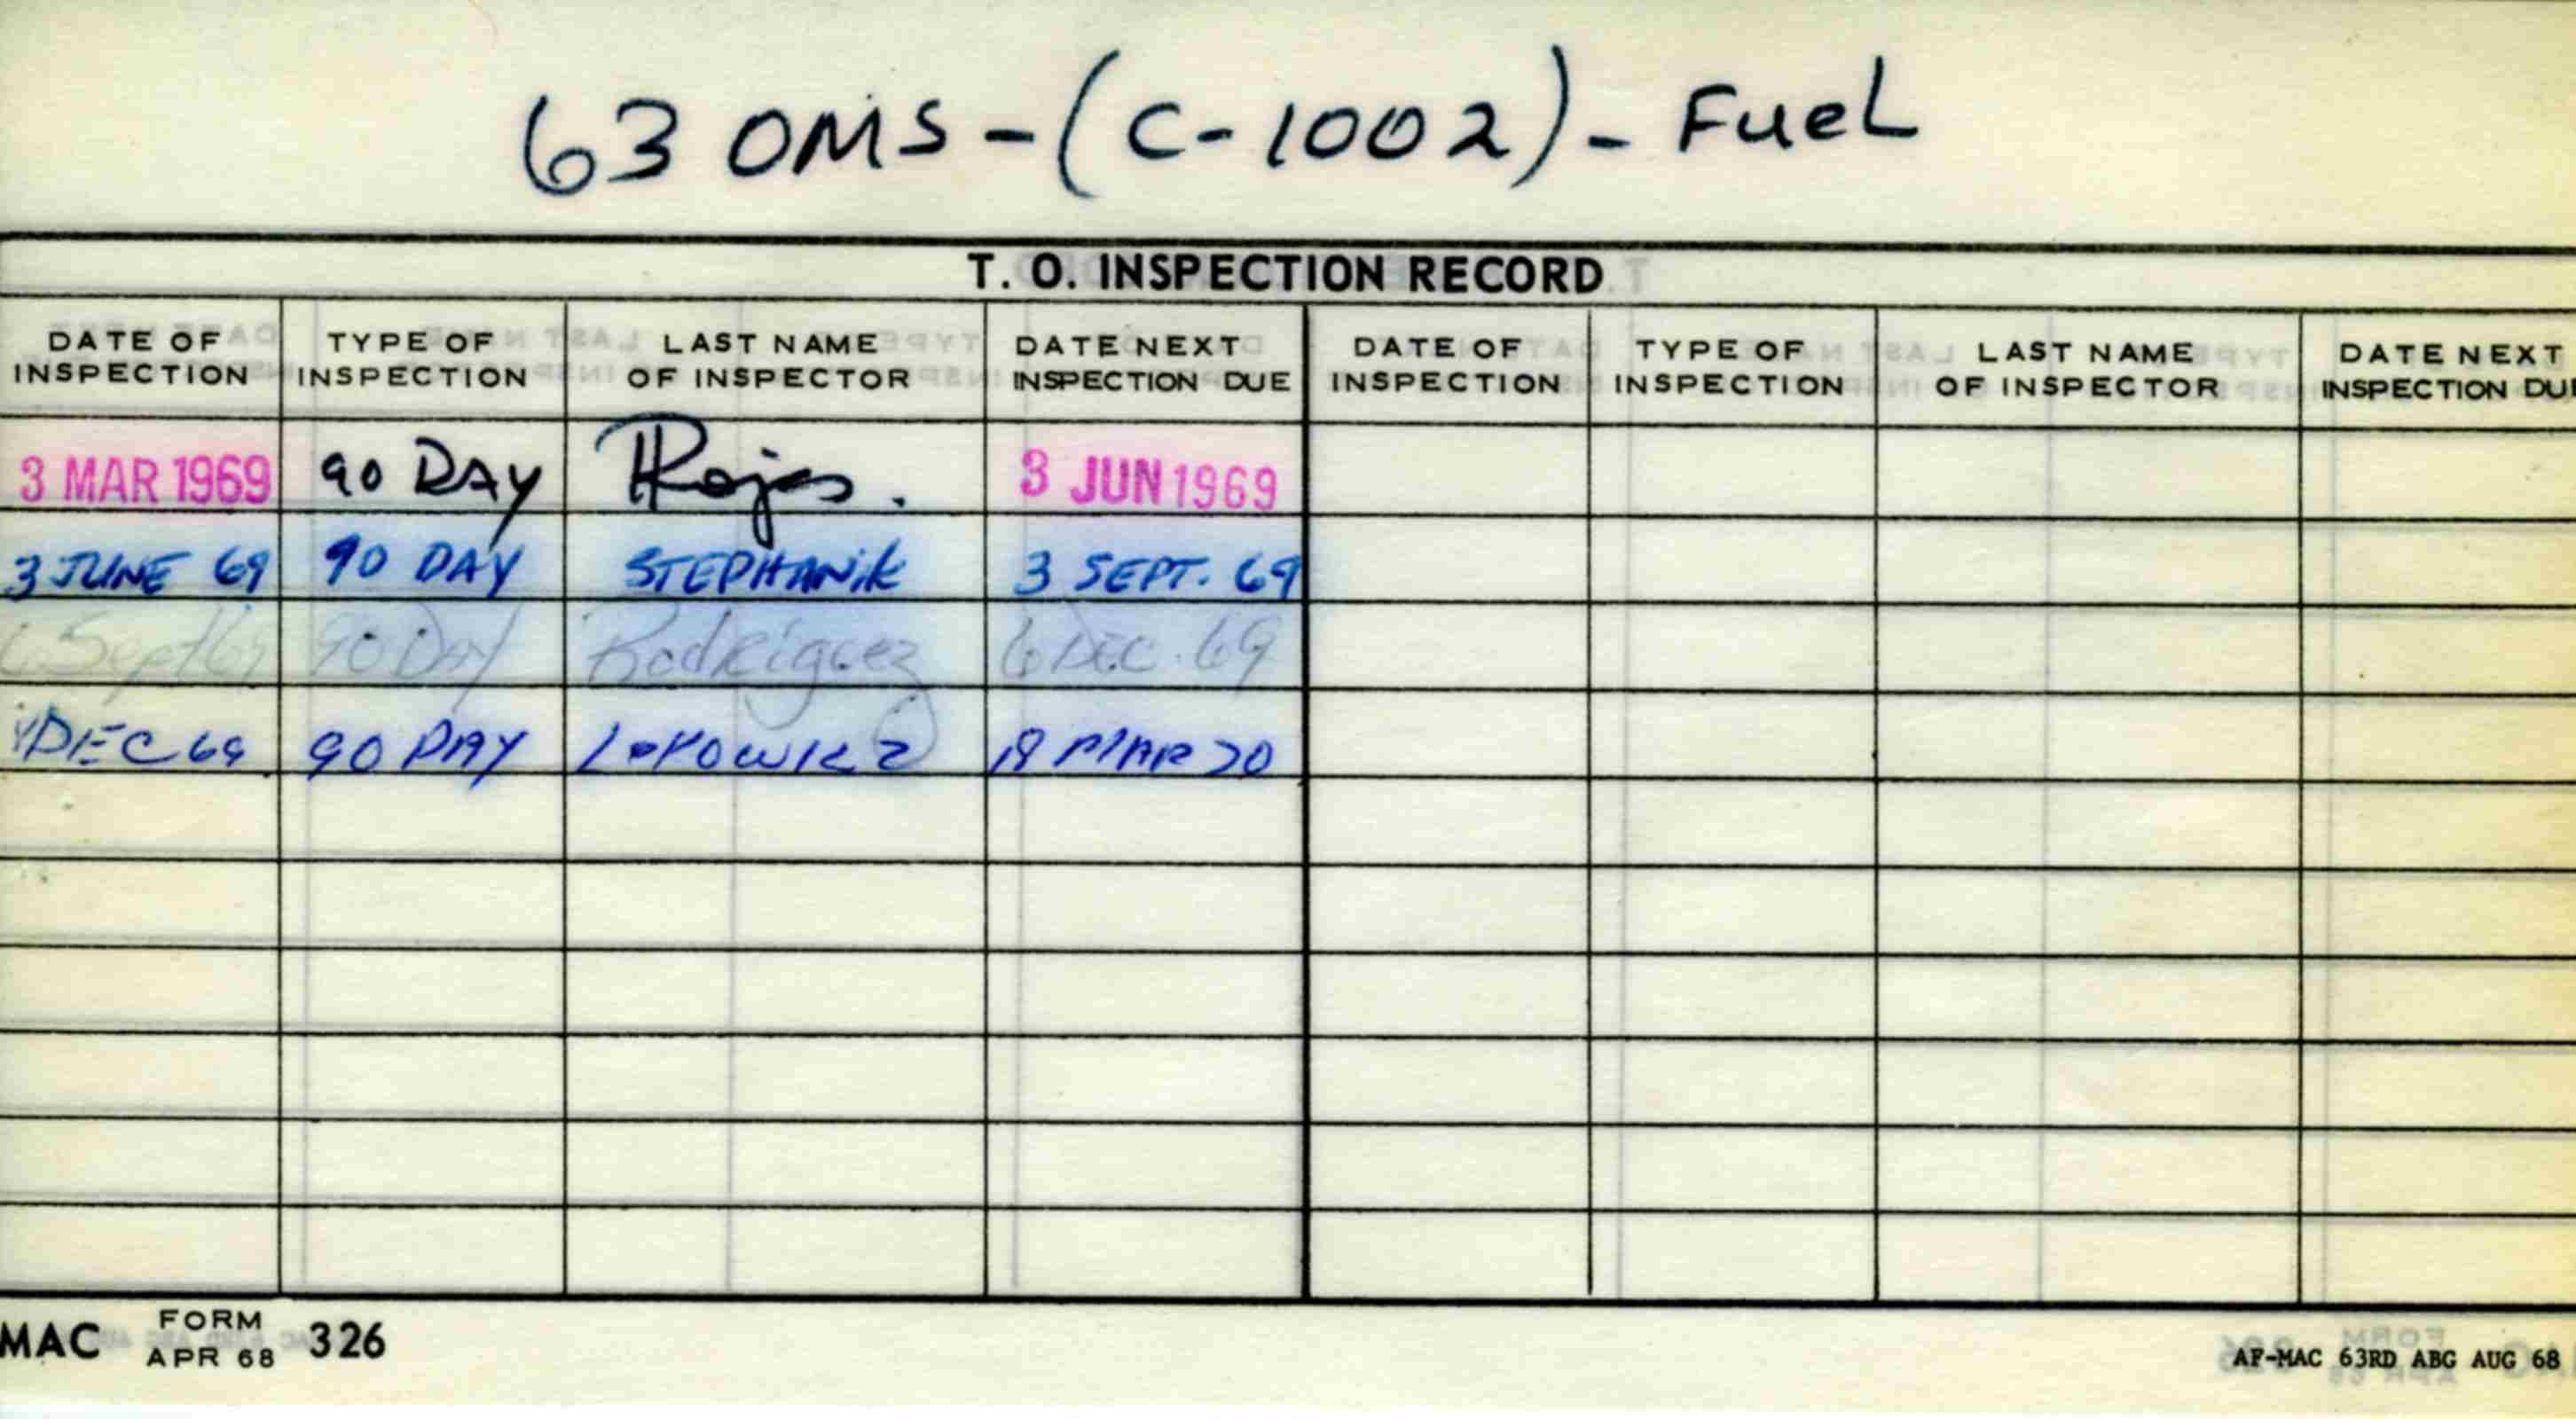 63 OMS - (C-1002) - FueL
T. O. INSPECTION RECORD
DATE OF INSPECTION TYPE OF INSPECTION LAST NAME OF INSPECTOR DATE NEXT INSPECTION DUE DATE OF INSPECTION TYPE OF INSPECTION LAST NAME OF INSPECTOR DATE NEXT INSPECTION DU
3 MAR 1969 90 DAY Rojas. 3 JUN 1969
3 JUNE 69 90 DAY STEPHANIK 3 SEPT. 69
6 Sept 69 90 DAY Rodriguez 6 DEC. 69
DEC 69 90 DAY 18 MAR 70
MAC FORM APR 68 326
AF-MAC 63RD ABG AUG 68